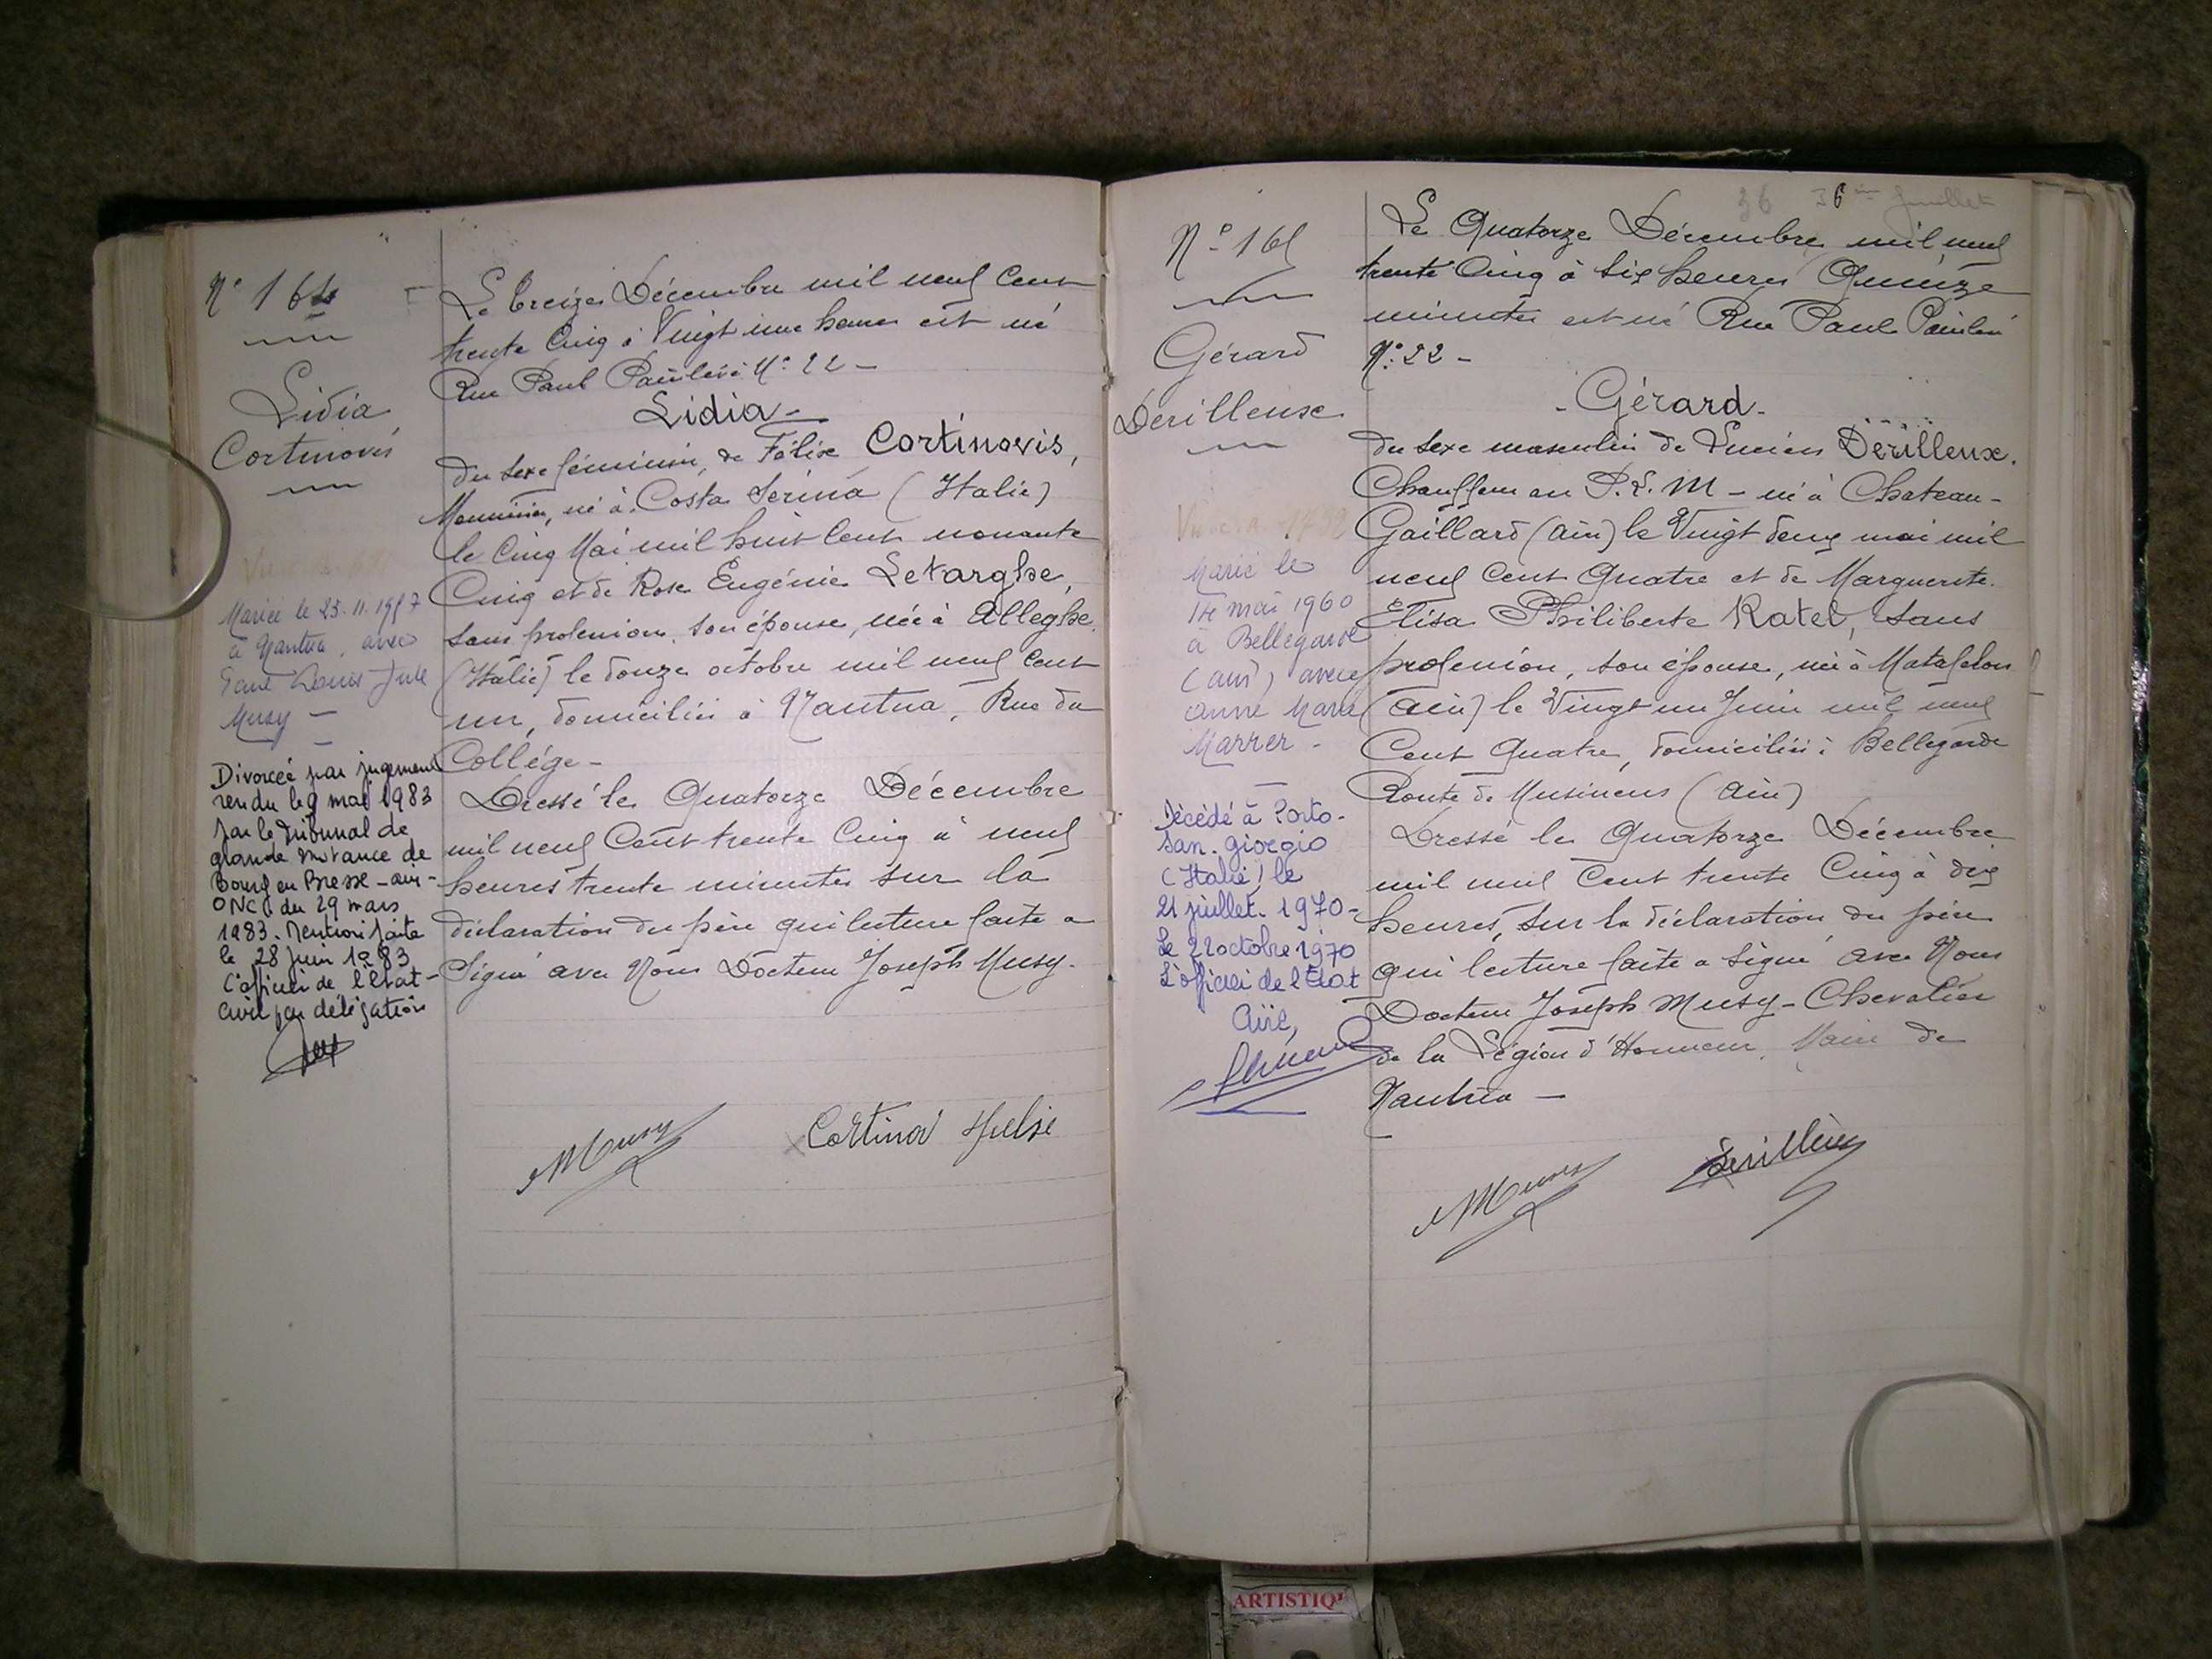 N° 164
Lidia
Cortinovis
Mariée le 23.11.1957
à Nantua, avec
Paul Louis Jule
Musy -
Divorcée par jugement
rendu le 9 mai 1983
par le Tribunal de
grande instance de
Bourg en Bresse - ain -
ONC du 29 mars
1983. Mention faite
le 28 juin 1983
L'officier de l'état-
civil par délégation
Le treize Décembre mil neuf Cent
trente Cinq à Vingt une heures est né
Rue Paul Painlevé N° 22 -
Lidia -
du sexe féminin, de Félix Cortinovis,
né à Costa Serina (Italie)
le Cinq Mai mil huit Cent nonante
Cinq et de Rose Eugénie Letarghe,
sans profession, son épouse, née à Alleghe
(Italie) le douze octobre mil neuf Cent
un, domiciliés à Nantua, Rue du
Collége -
Dressé le Quatorze Décembre
mil neuf Cent trente Cinq à neuf
heures trente minutes sur la
déclaration du père qui lecture faite a
Signé avec Nous Docteur Joseph Musy.
Musy
Cortinov Felise
N° 165
Gérard
Dérilleux
Marié le
14 mai 1960
à Bellegarde
(ain) avec
Anne Marie
Marrer -
Décédé à Porto-
San. giorgio
(Italie) le
21 juillet. 1970 -
Le 22 octobre 1970
L'officier de l'Etat
Civil,
36 36 Juillet
Le Quatorze Décembre mil neuf
trente Cinq à Six heures Quinze
minutes est né Rue Paul Painlevé
N° 22 -
- Gérard -
du sexe masculin de Lucien Dérilleux.
Chauffeur au P.L.M - né à Chateau-
Gaillard (ain) le Vingt deux mai mil
neuf Cent Quatre et de Marguerite
Elisa Philiberte Ratel, sans
profession, son épouse, née à Matafelon
(ain) le Vingt un Juin mil neuf
Cent Quatre, domiciliés à Bellegarde
Route de Musinens (ain)
Dressé le Quatorze Décembre
mil neuf Cent trente Cinq à dix
heures, sur la déclaration du père
qui lecture faite a Signé avec Nous
Docteur Joseph Musy - Chevalier
de la Légion d'Honneur, Maire de
Nantua -
Musy
Dérilleux
ARTISTIQ